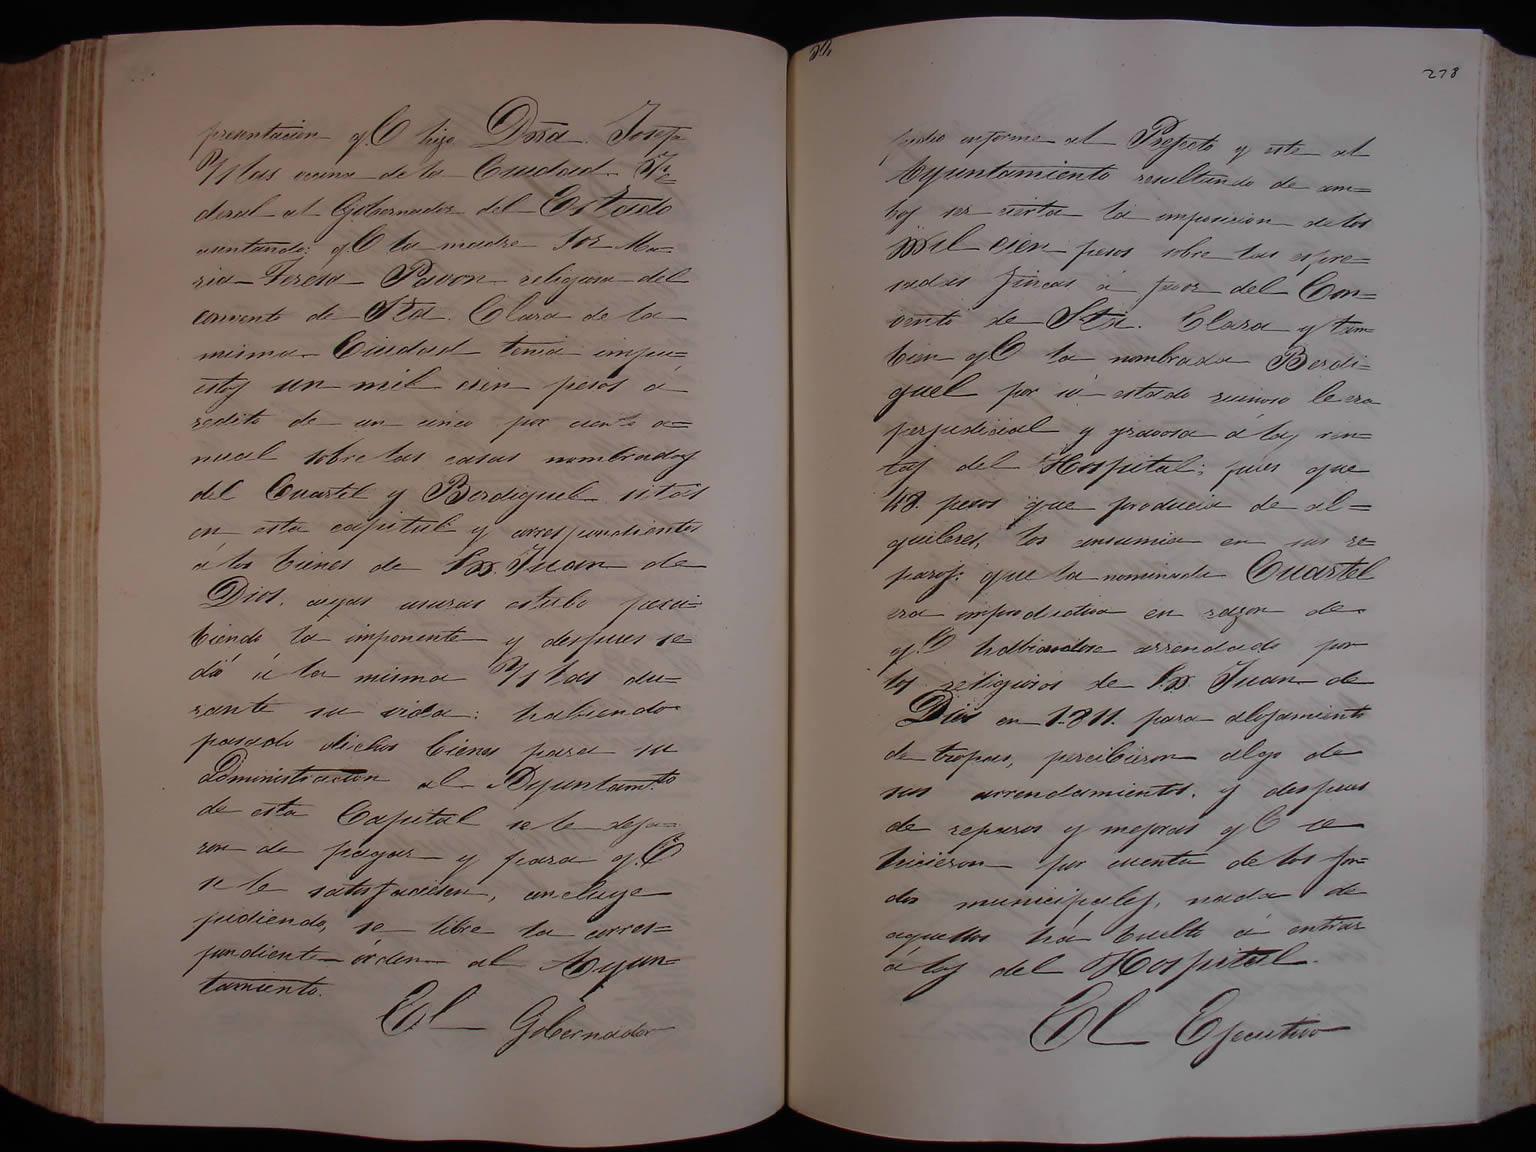 presentacion q.e hizo Dña. Josefa
Yslas vecina de la Ciudad Fe=
deral al Gobernador del Estado
asentando: q.e la madre Sor Ma=
ria Teresa Pavon religiosa del
convento de Sta. Clara de la
misma Ciudad tenia impu=
estos un mil cien pesos á
redito de un cinco por ciento a=
nual sobre las casas nombradas
del Cuartel y Berdiguel sitas
en esta capital y correspondientes
á los bienes de Sn. Juan de
Dios, cuyas usuras estubo perci=
biendo la imponente y despues se
dó á la misma Yslas du=
rante su vida: habiendo
pasado dichos bienes para su
Administracion al Ayuntam.to
de esta Capital se le deja=
ron de pagar y para q.e
se le satisfaciesen, concluye
pidiendo, se libre la corres=
pondiente órden al Ayun=
tamiento.
El Gobernador
278
pidio informe al Prefecto y este al
Ayuntamiento resultando de am=
bos ser cierta la imposicion de los
mil cien pesos sobre las espre=
sadas fincas á favor del Con=
vento de Sta. Clara y tam=
bien q.e la nombrada Berdi=
guel por su estado ruinoso le era
perjudicial y gravosa á las ren=
tas del Hospital; pues que
48. pesos que producia de al=
quileres, los consumia en sus re=
paros: que la nominada Cuartel
era improductiva en razon de
q.e habiendose arrendado por
los religiosos de Sn. Juan de
Dios en 1.811. para alojamiento
de tropas, percibieron algo de
sus arrendamientos, y despues
de reparos y mejoras q.e se
hicieron por cuenta de los fon=
dos municipales, nada de
aquellos há buelto á entrar
á los del Hospital.
El Ejecutivo